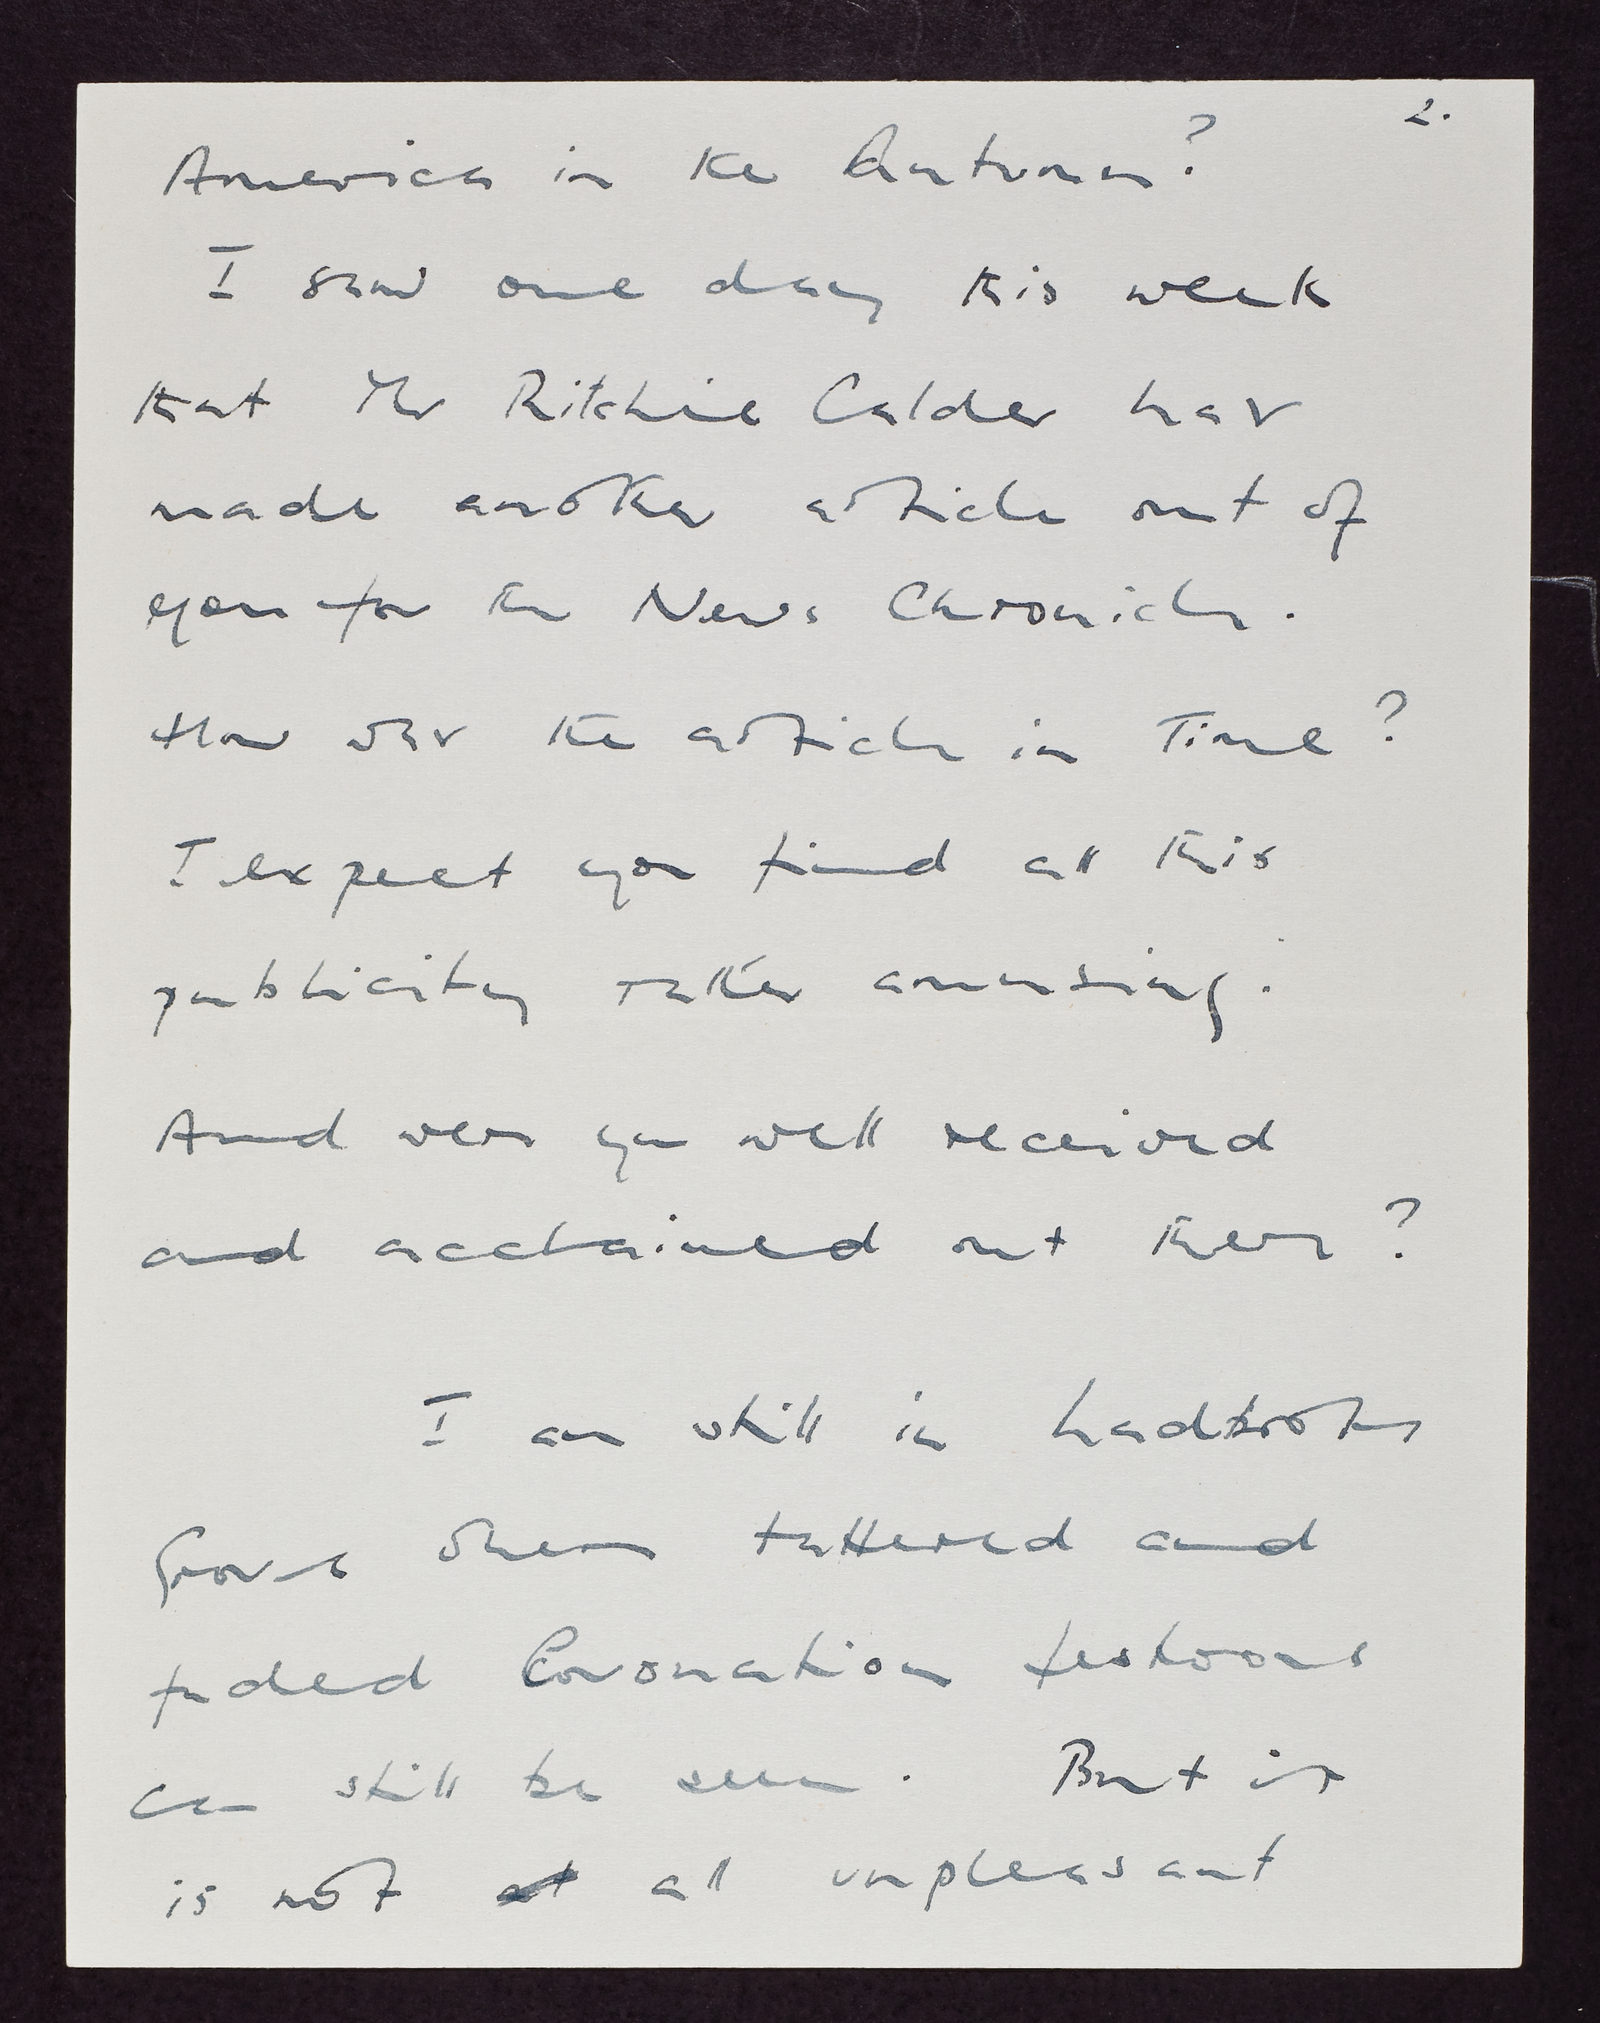 2.
America in the Autumn?
I saw one day this week
that Mr Ritchie Calder has
made another article out of
you for the News Chronicle.
How was the article in Time?
I expect you find all this
publicity rather amusing.
And were you well received
and acclaimed out there?
I am still in Ladbroke
Grove where tattered and
faded Coronation festoons
can still be seen. But it
is not at all unpleasant